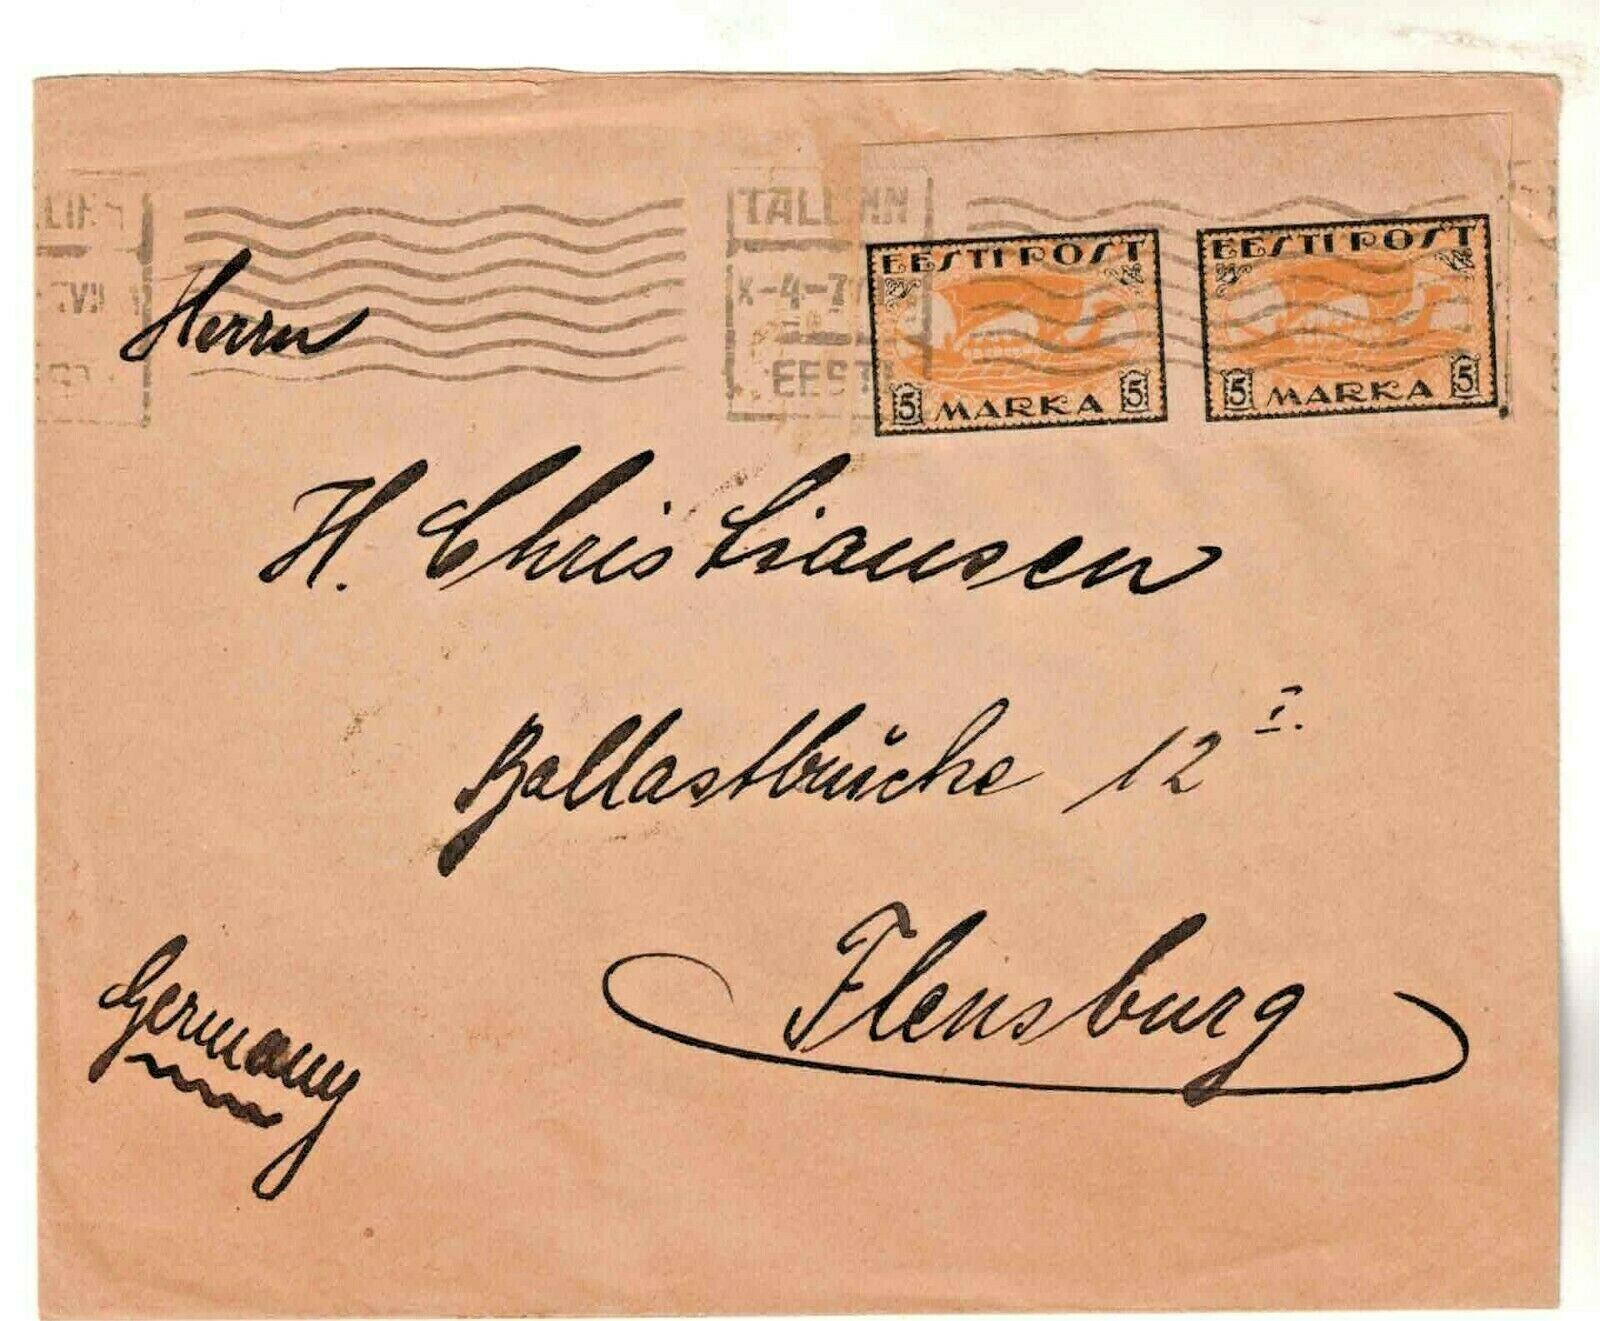 TALLINN
EESTI
EESTI POST
5 MARKA 5
EESTI POST
5 MARKA 5
Herrn
H. Christiansen
Ballastbrücke 12 I.
Flensburg
Germany